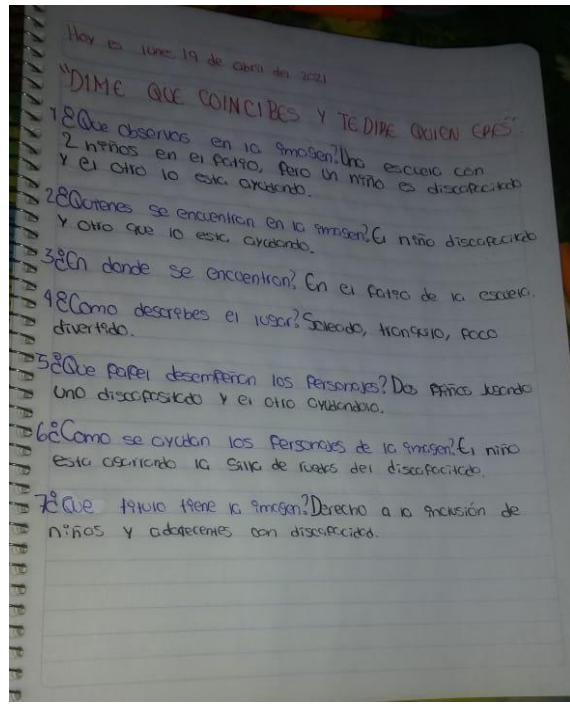 Hoy es lune 19 de abril del 2021
"DIME QUE COINCIBES Y TE DIRE QUIEN ERES".
1¿Que observas en la imagen? Una escuela con
2 niños en el patio, pero un niño es discapacitado
y el otro lo esta ayudando.
2¿Quienes se encuentran en la imagen? El niño discapacitado
y otro que lo esta ayudando.
3¿En donde se encuentran? En el patio de la escuela.
4¿Como describes el lugar? Soleado, tranquilo, poco
divertido.
5¿Que papel desempeñan los personajes? Dos niños jugando
uno discapositado y el otro ayudandolo.
6¿Como se ayudan los personajes de la imagen? El niño
esta agarrando la silla de ruedas del discapacitado.
7¿Que titulo tiene la imagen? Derecho a la inclusión de
niños y adolecentes con discapacidad.